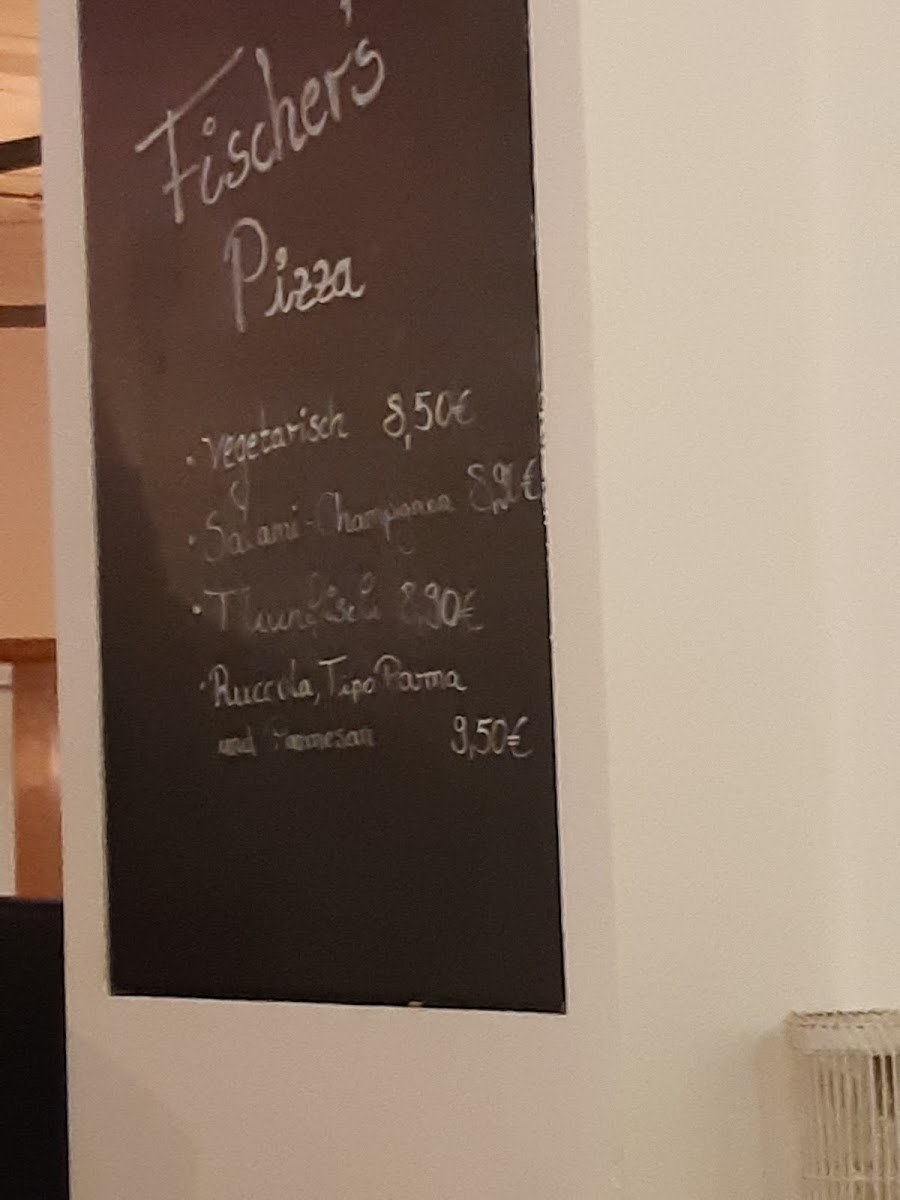 Fischers
Pizza
· Vegetarisch 8,50€
· Salami-Champignon 8,90€
· Thunfisch 8,90€
· Ruccola, Tipo Parma
und Parmesan 9,50€